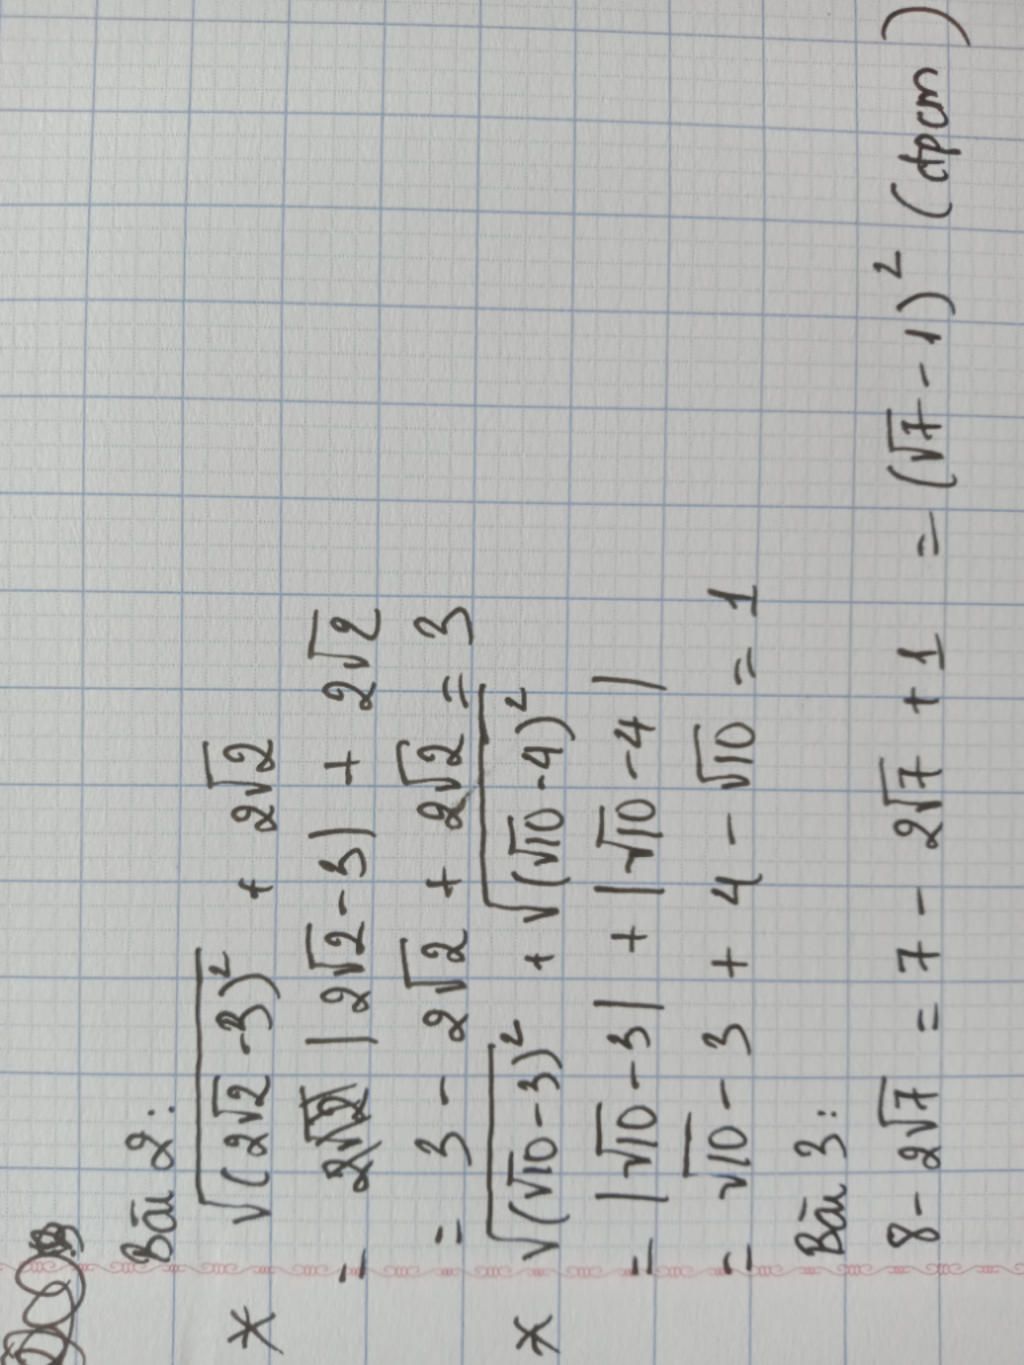 Bài 2:
* √(2√2 -3)² + 2√2
= |2√2 - 3| + 2√2
= 3 - 2√2 + 2√2 = 3
* √(√10 - 3)² + √(√10 - 4)²
= |√10 - 3| + |√10 - 4|
= √10 - 3 + 4 - √10 = 1
Bài 3:
8 - 2√7 = 7 - 2√7 + 1 = (√7 - 1)² (đpcm)